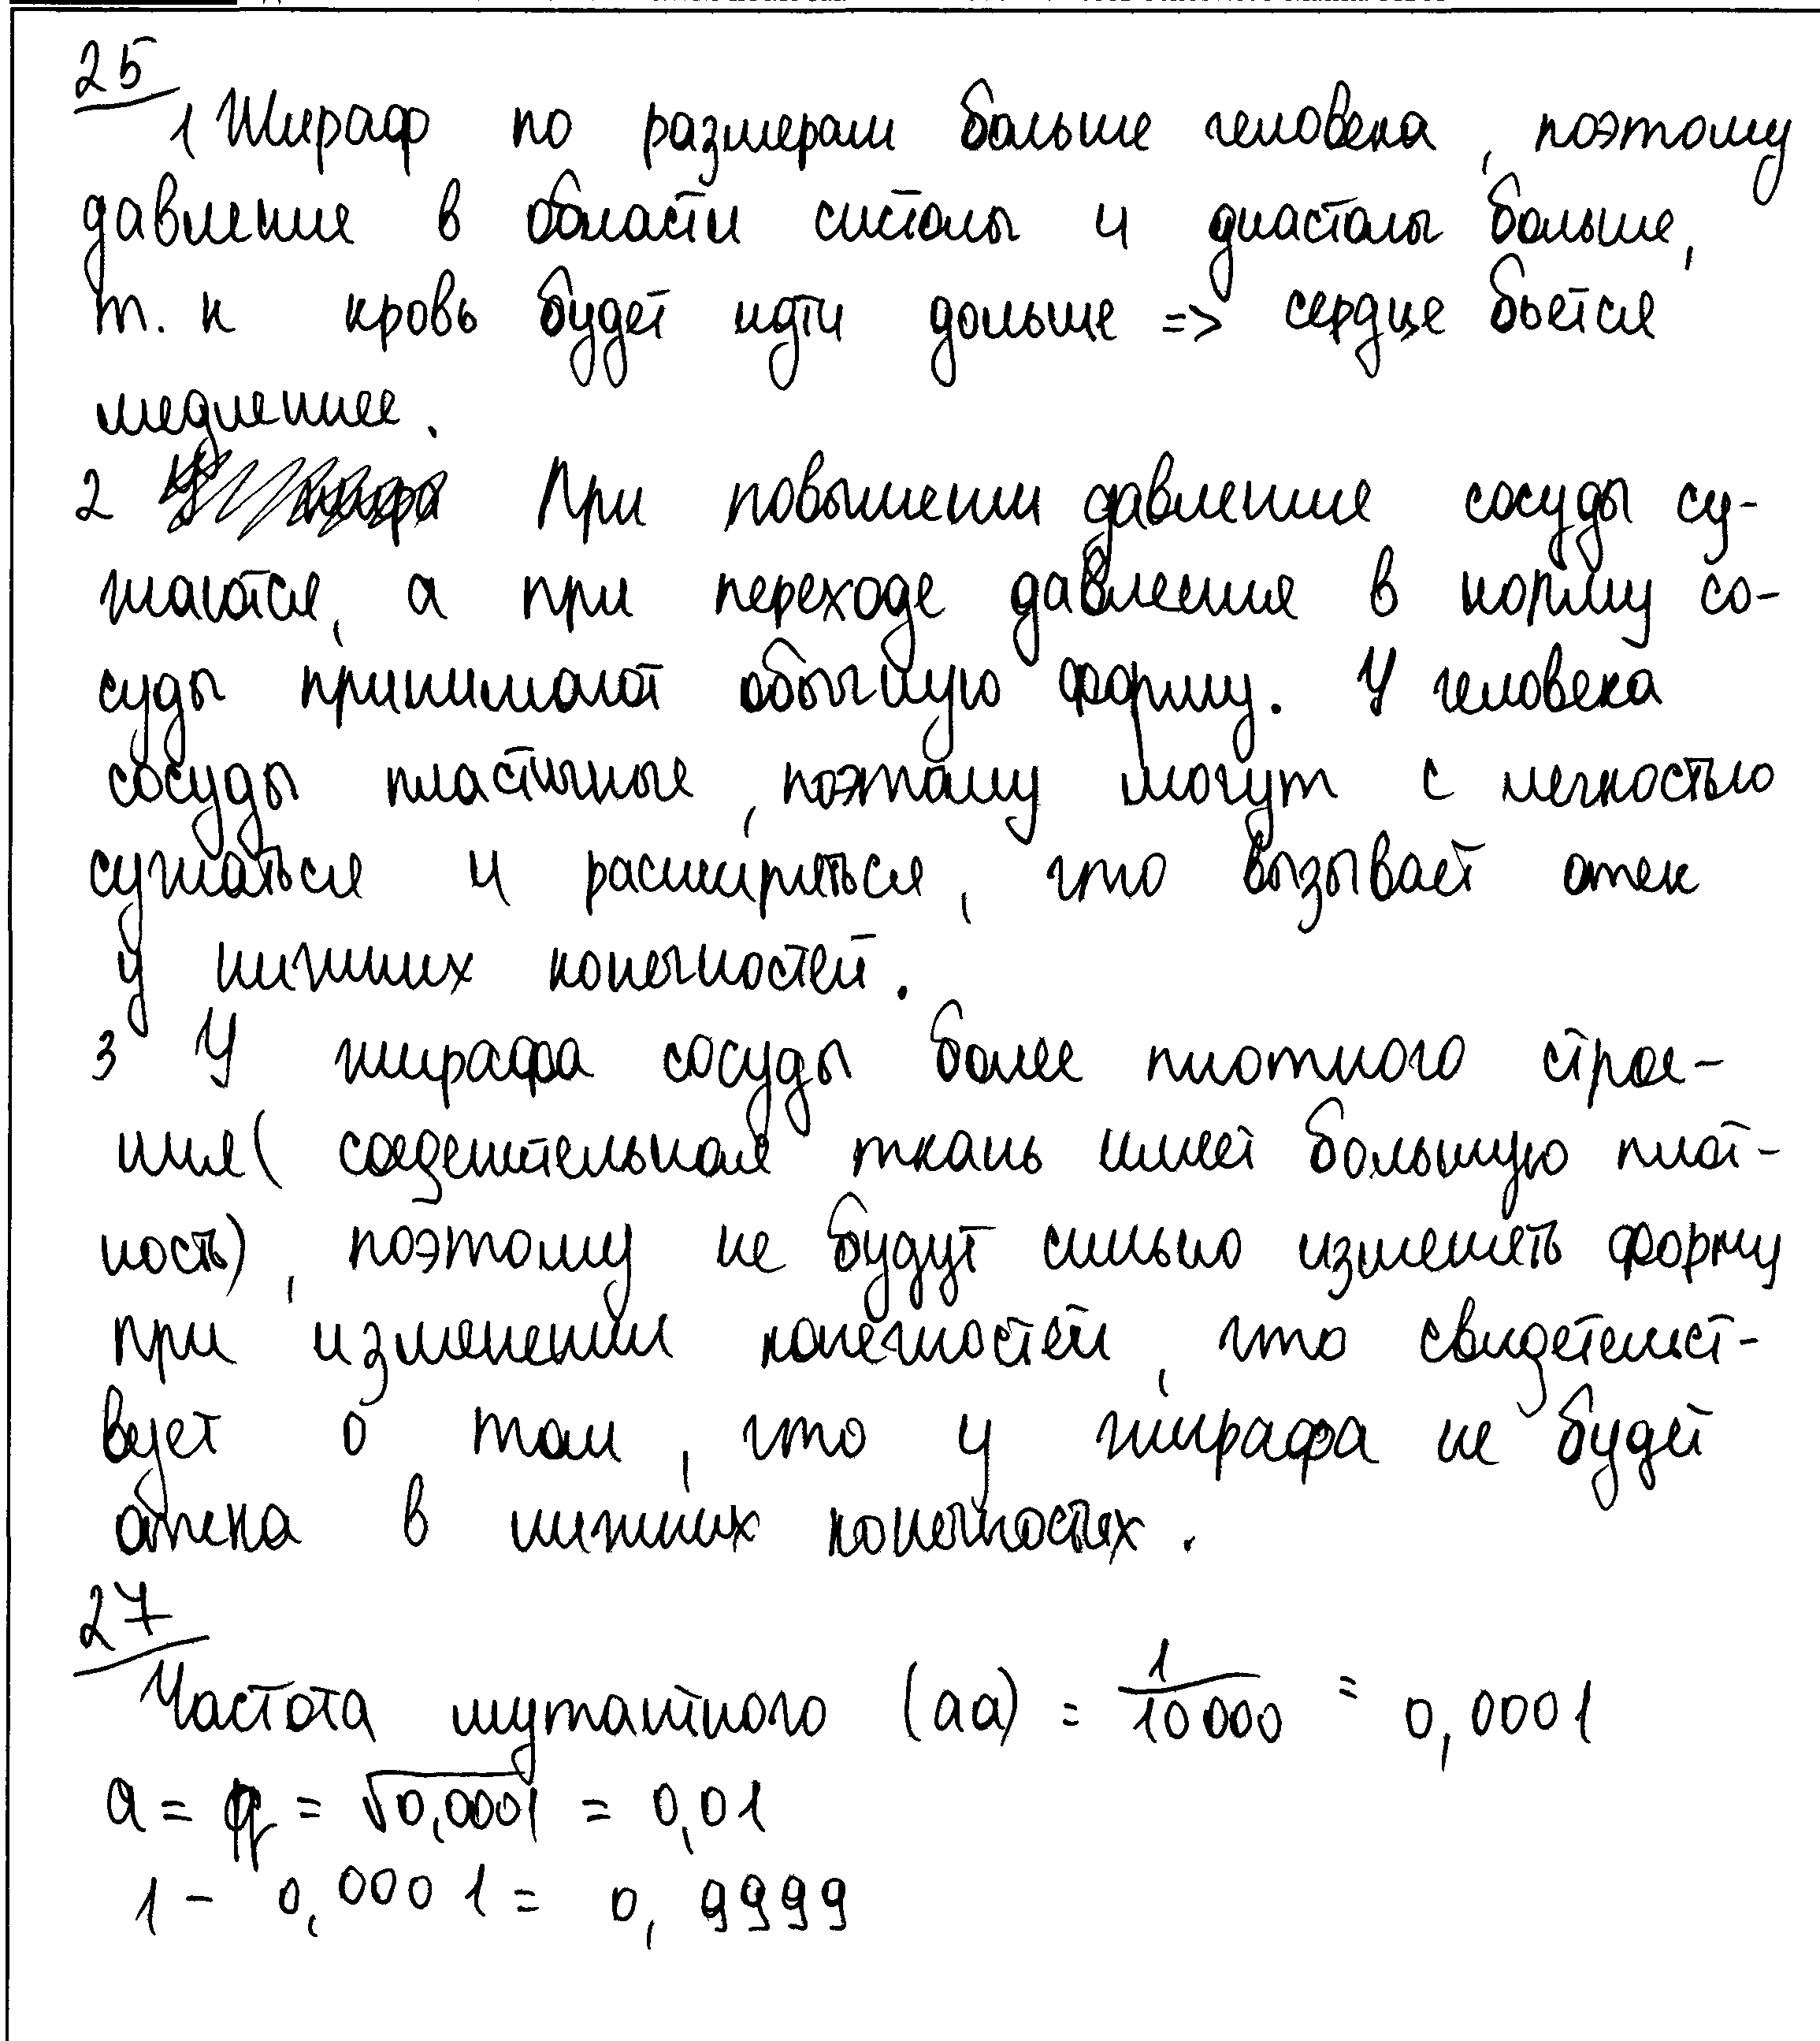 25
1 Жираф по размерам больше человека, поэтому
давление в области систолы и диастолы больше,
т. к кровь будет идти дольше => сердце бьется
медленнее.
2 При повышении давление сосуды су-
жаются, а при переходе давления в норму со-
суды принимают обычную форму. У человека
сосуды пластичные, поэтому могут с легкостью
сужаться и расширяться, что вызывает отек
у нижних конечностей.
3 У жирафа сосуды более плотного строе-
ния (соеденительная ткань имеет большую плот-
ность), поэтому не будут сильно изменять форму
при изменении конечностей, что свидетельст-
вует о том, что у жирафа не будет
отека в нижних конечностях.
27
Частота мутантного (aa) = 1/10000 = 0,0001
a = q = √0,0001 = 0,01
1 - 0,0001 = 0,9999